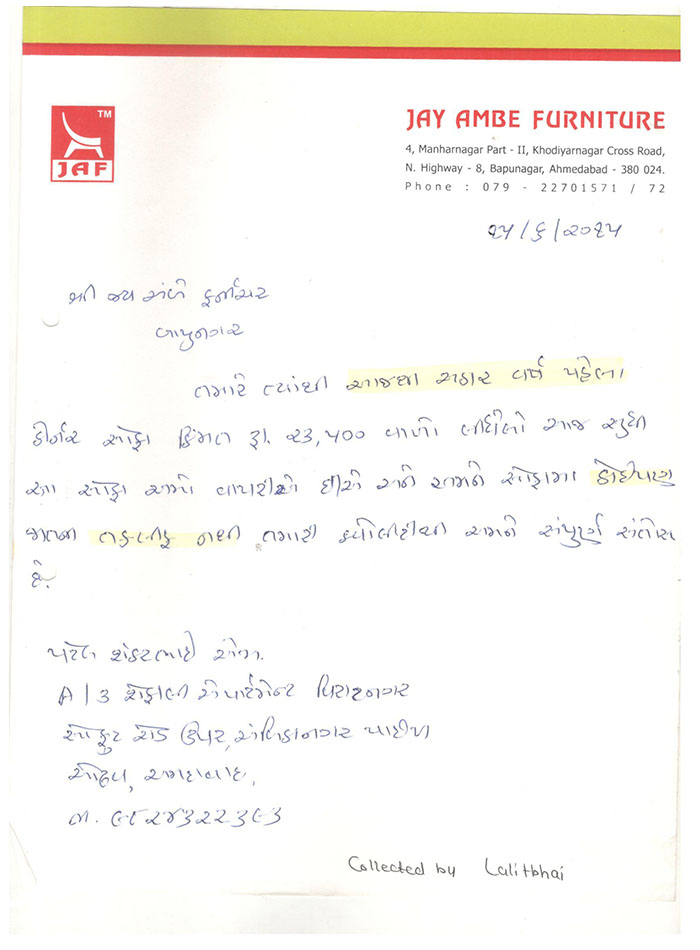 TM
JAF
JAY AMBE FURNITURE
4, Manharnagar Part - II, Khodiyarnagar Cross Road,
N. Highway - 8, Bapunagar, Ahmedabad - 380 024.
Phone : 079 - 22701571 / 72
૨૫/૬/૨૦૧૫
શ્રી જય અંબે ફર્નીચર
બાપુનગર
તમારે ત્યાંથી આજથી અઢાર વર્ષ પહેલા
કોર્નર સોફા કિંમત રૂા. ૨૩,૫૦૦ વાળો લીધેલો આજ સુધી
આ સોફા અમો વાપરીએ છીએ અને અમને સોફામા કોઈપણ
જાતની તકલીફ નથી તમારી ક્વોલીટીથી અમને સંપુર્ણ સંતોષ
છે.
પટેલ શંકરભાઈ
A/3 શેફાલી એપાર્ટમેન્ટ વિરાટનગર
સોફુટ રોડ ઉપર, અંબિકાનગર પાછીળ
ઓઢવ, અમદાવાદ,
મો. ૯૮૨૪૩૨૨૩૯૩
Collected by Lalitbhai